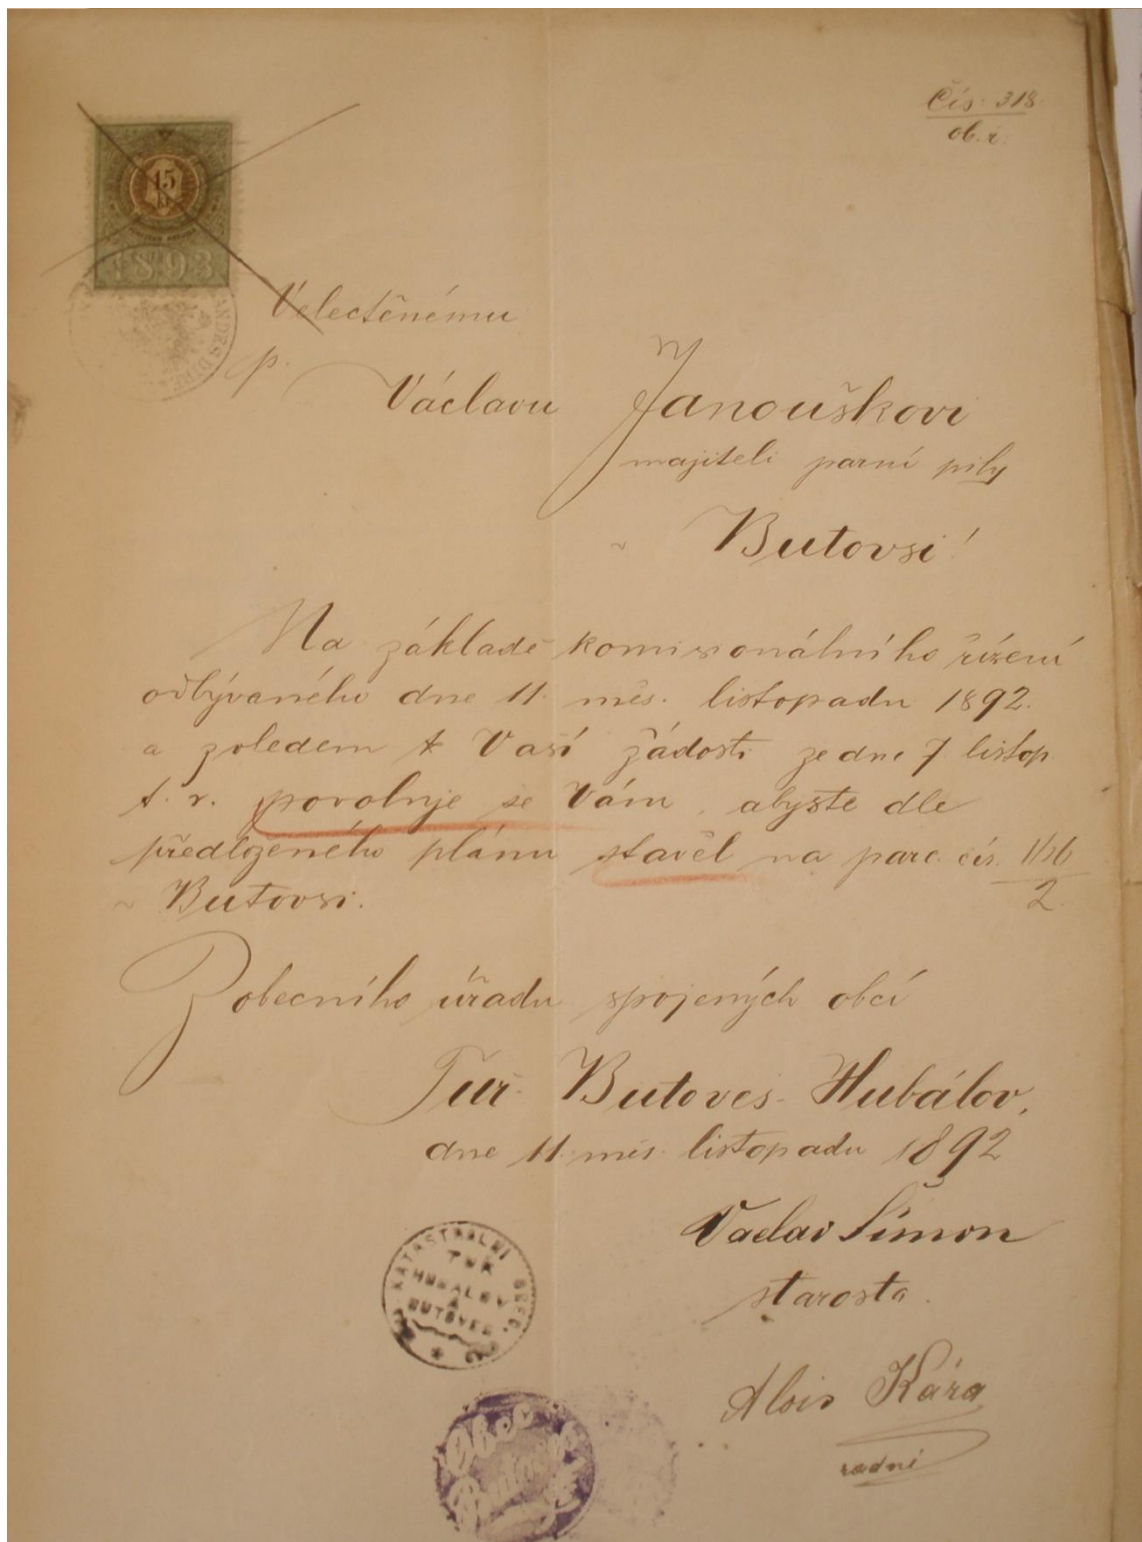 Čís. 318
ob. ř.
15
1893
Velectěnému
p.
Václavu Janouškovi
majiteli parní pily
v Butovsi!
Na základě komisionálního řízení
odbývaného dne 11. měs. listopadu 1892.
a zřledem k Vaší žádosti ze dne 7 listop
t. r. povoluje se Vám, abyste dle
předloženého plánu stavěl na parc. čís.
2
v Butovsi.
Z obecního úřadu spojených obcí
Tuř- Butoves- Hubálov,
dne 11. měs. listopadu 1892
Václav Šimon
starosta.
KATASTRALNI OBEC.
TUŘ
HUBALOV
A
BUTOVES
Alois Kára
radní
Obec
Butoves